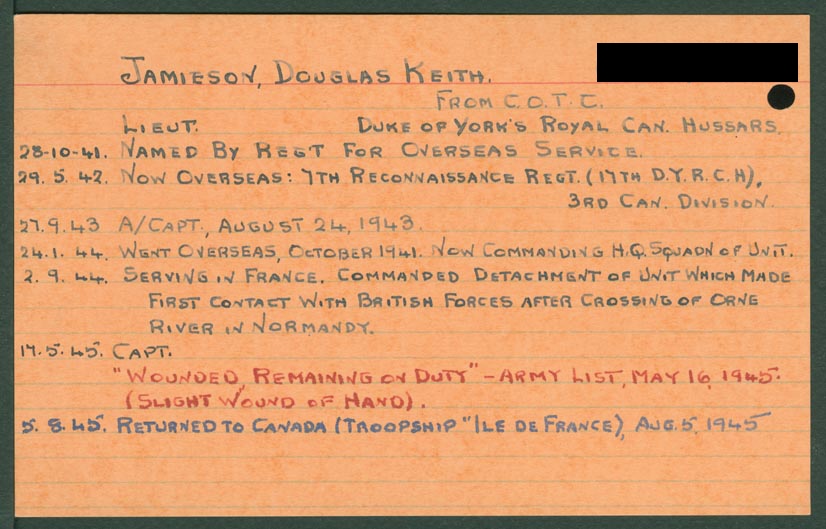 JAMIESON, DOUGLAS KEITH.
FROM C.O.T.C.
LIEUT. DUKE OF YORK'S ROYAL CAN. HUSSARS.
28-10-41. NAMED BY REGT FOR OVERSEAS SERVICE.
29.5.42. NOW OVERSEAS: 7TH RECONNAISSANCE REGT. (17TH D.Y.R.C.H),
3RD CAN. DIVISION.
27.9.43 A/CAPT., AUGUST 24, 1943.
24.1.44. WENT OVERSEAS, OCTOBER 1941. NOW COMMANDING H.Q. SQUADN OF UNIT.
2.9.44. SERVING IN FRANCE. COMMANDED DETACHMENT OF UNIT WHICH MADE
FIRST CONTACT WITH BRITISH FORCES AFTER CROSSING OF ORNE
RIVER IN NORMANDY.
17.5.45. CAPT.
"WOUNDED, REMAINING ON DUTY" - ARMY LIST, MAY 16, 1945.
(SLIGHT WOUND OF HAND).
5.8.45. RETURNED TO CANADA (TROOPSHIP "ILE DE FRANCE), AUG. 5, 1945